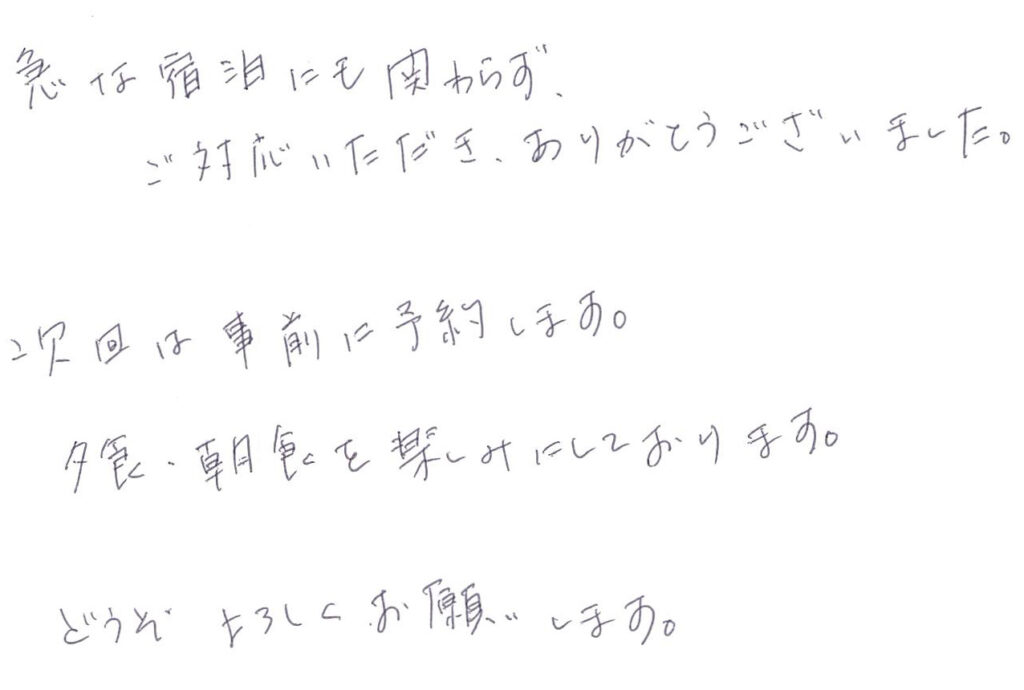 急な宿泊にも関わらず、
ご対応いただき、ありがとうございました。
次回は事前に予約します。
夕食・朝食を楽しみにしております。
どうぞよろしくお願いします。